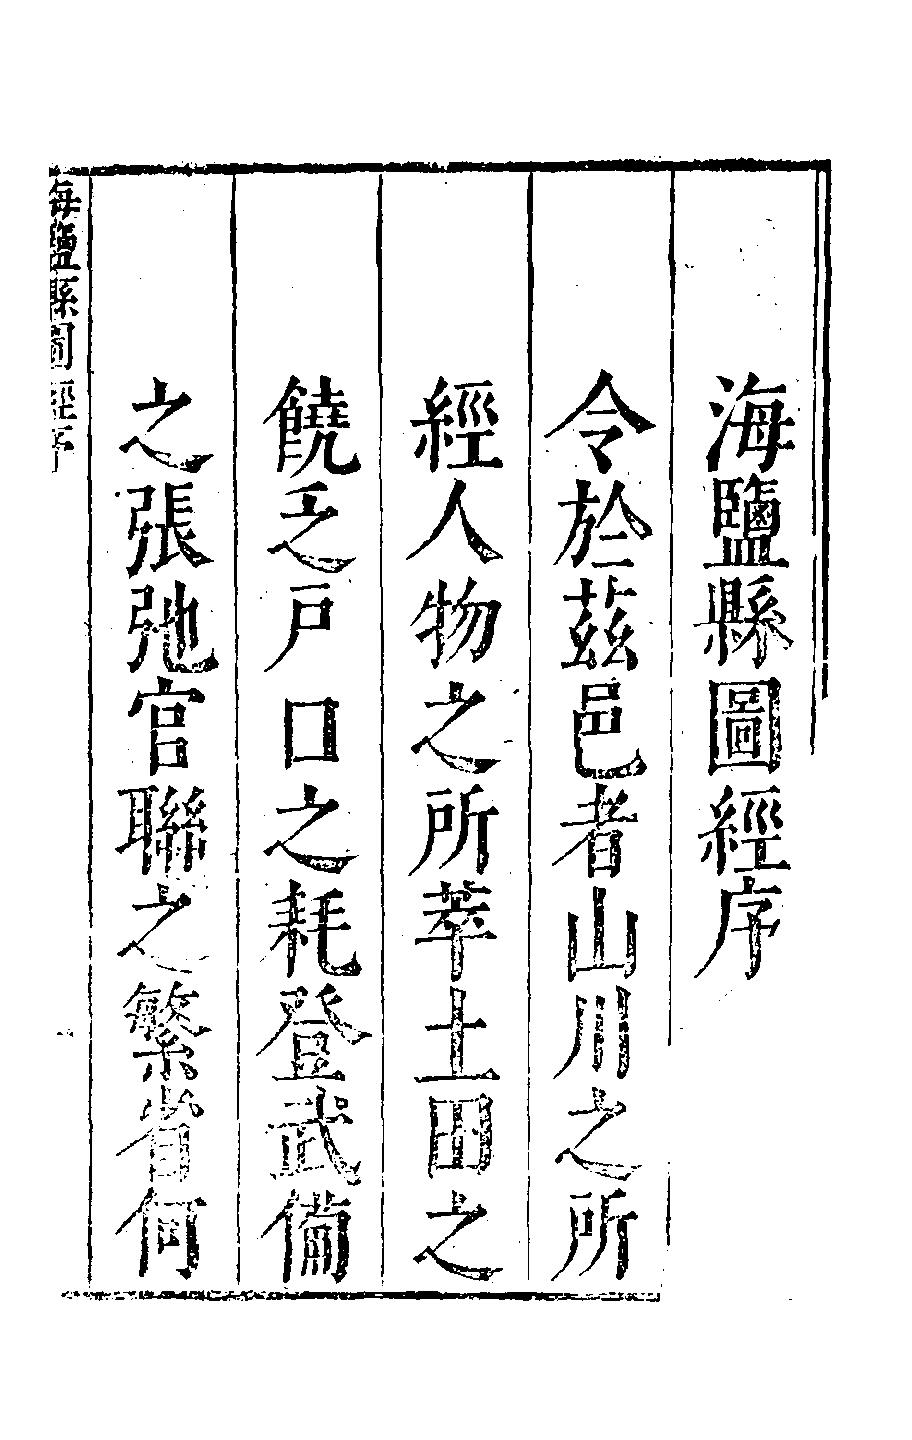 海鹽縣圖經序
令於茲邑者山川之所
經人物之所萃土田之
饒乏戶口之耗登武備
之張弛官聯之繁省何
海鹽縣圖經序